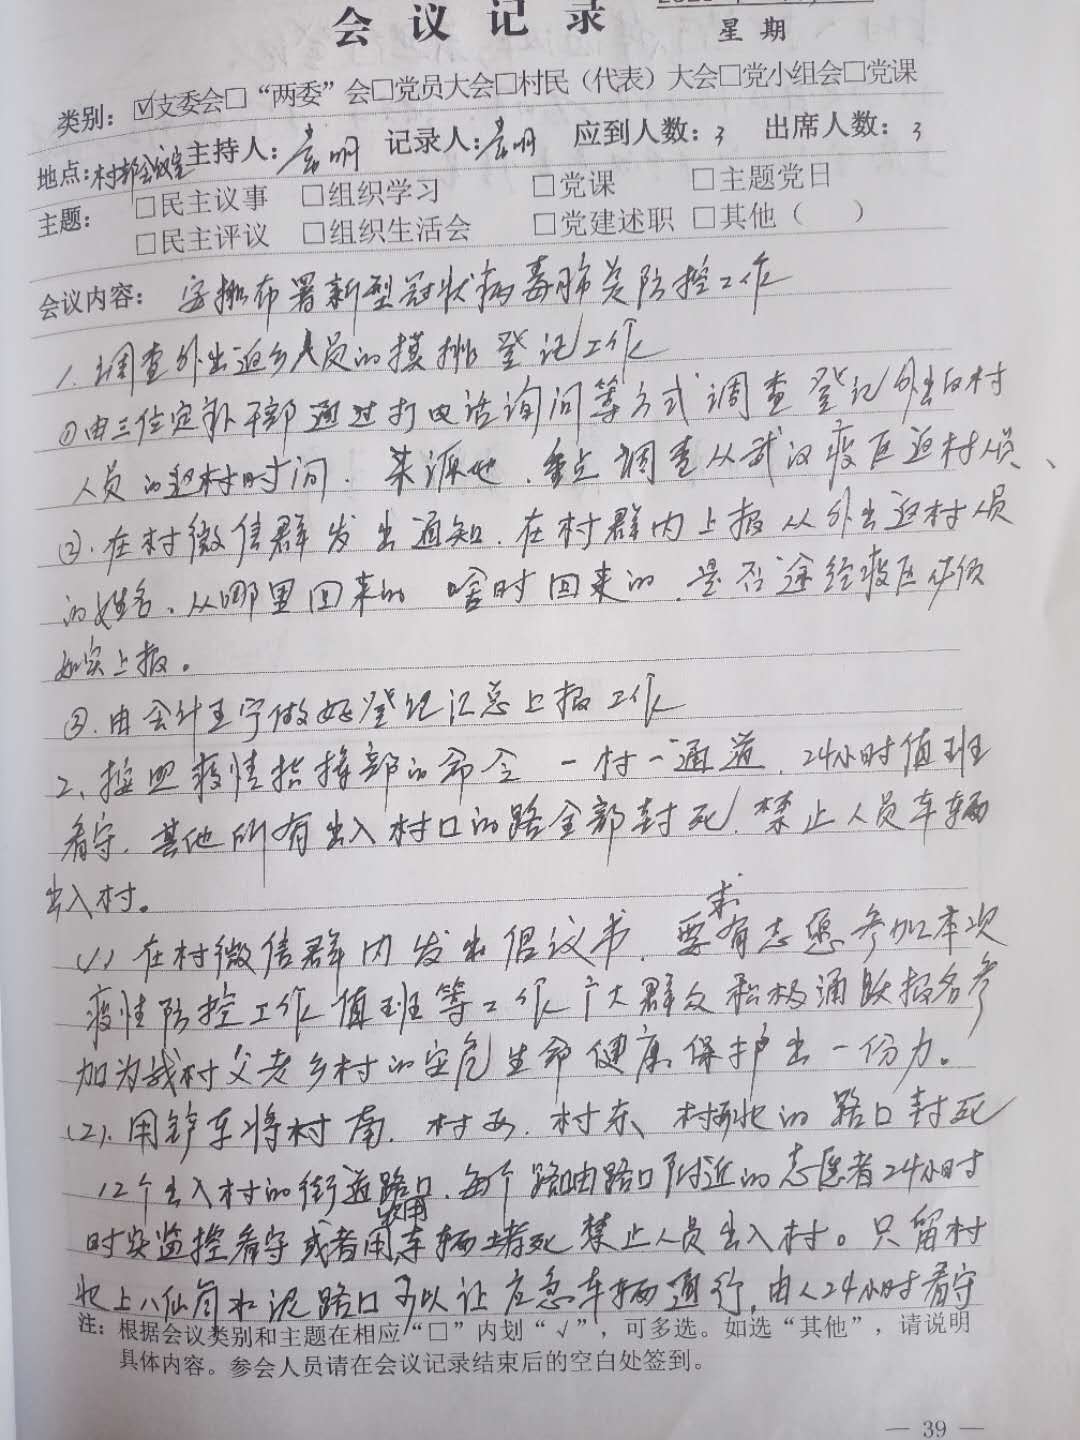 会议记录
星期
类别：☑支委会□“两委”会□党员大会□村民（代表）大会□党小组会□党课
地点：村部会议室 主持人： 明 记录人： 明 应到人数：3 出席人数：3
主题：□民主议事 □组织学习 □党课 □主题党日
□民主评议 □组织生活会 □党建述职 □其他（ ）
会议内容：安排布署新型冠状病毒肺炎防控工作
1.调查外出返乡人员的摸排登记工作
①由三位定补干部通过打电话询问等方式调查登记外出返村
人员的返村时间．来源地．重点调查从武汉疫区返村人员、
②.在村微信群发出通知．在村群内上报从外出返村人员
的姓名．从哪里回来的 啥时回来的．是否途经疫区必须
如实上报。
③.由会计王宁做好登记汇总上报工作
2、按照疫情指挥部的命令 一村一通道．24小时值班
看守．其他所有出入村口的路全部封死．禁止人员车辆
出入村。
(1)在村微信群内发出倡议书．要求有志愿参加本次
疫情防控工作值班等工作广大群众积极涌跃报名参
加为我村父老乡村的安危生命健康保护出一份力。
(2).用铲车将村南．村西．村东、村北的路口封死
12个出入村的街道路口．每个路由路口附近的志愿者24小时
时实监控看守或者用车辆堵死禁止人员出入村。只留村
北上八仙 水泥路口可以让应急车辆通行．由人24小时看守
注：根据会议类别和主题在相应“□”内划“√”，可多选。如选“其他”，请说明
具体内容。参会人员请在会议记录结束后的空白处签到。
— 39 —